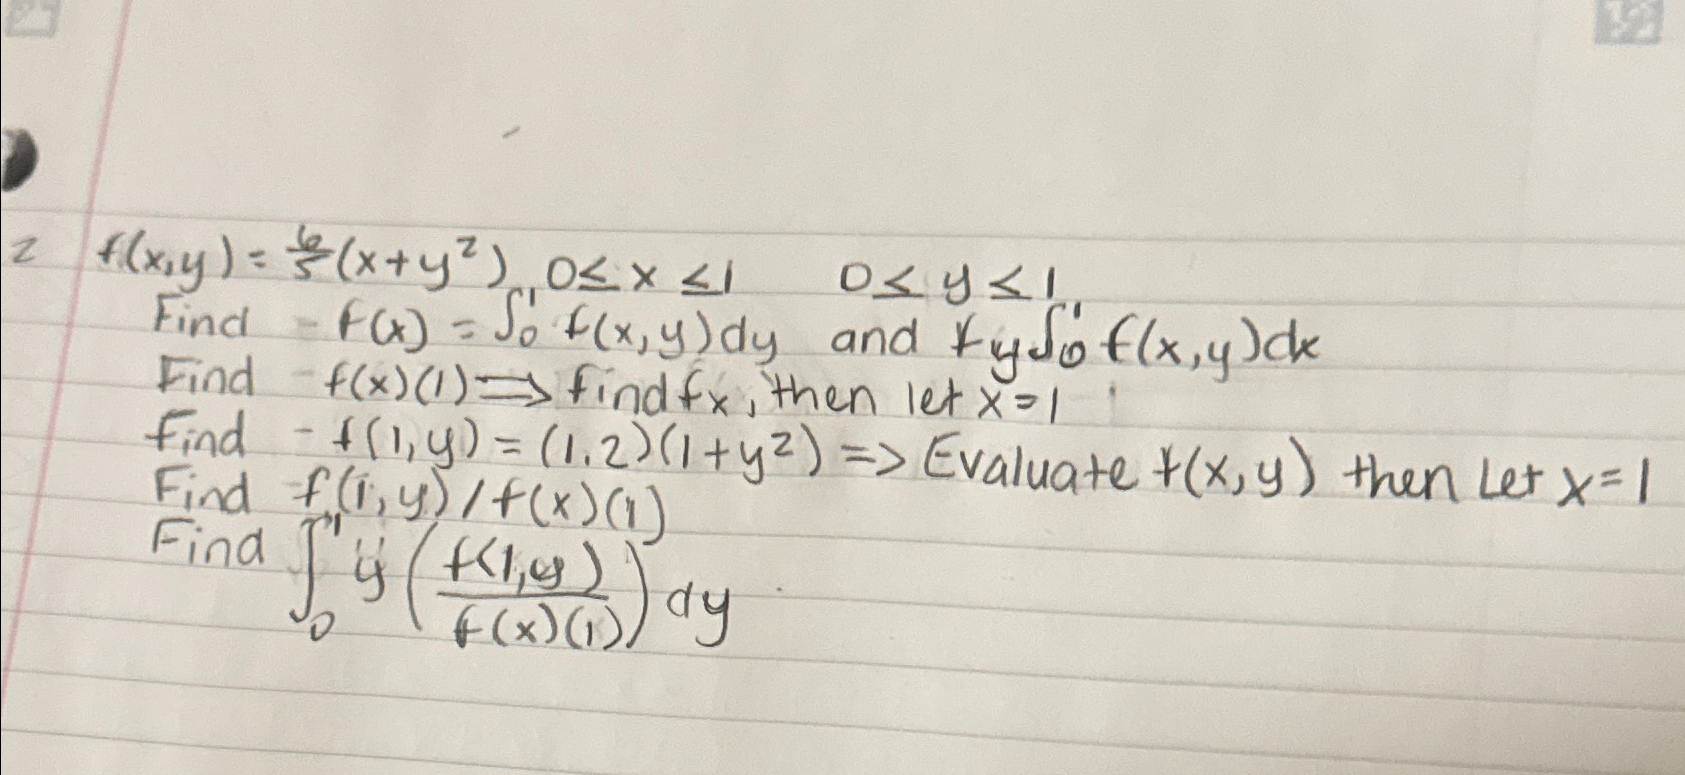 2 f(x,y) = 6/5 (x+y²) 0≤ x ≤1 0≤ y ≤1
Find - f(x) = ∫₀¹ f(x,y)dy and fy∫₀¹ f(x,y)dx
Find - f(x)(1) ⟹ find fx, then let x=1
find - f(1,y) = (1.2)(1+y²) => Evaluate f(x,y) then Let x=1
Find - f(1,y)/f(x)(1)
Find ∫₀¹ y (f(1,y)/f(x)(1)) dy